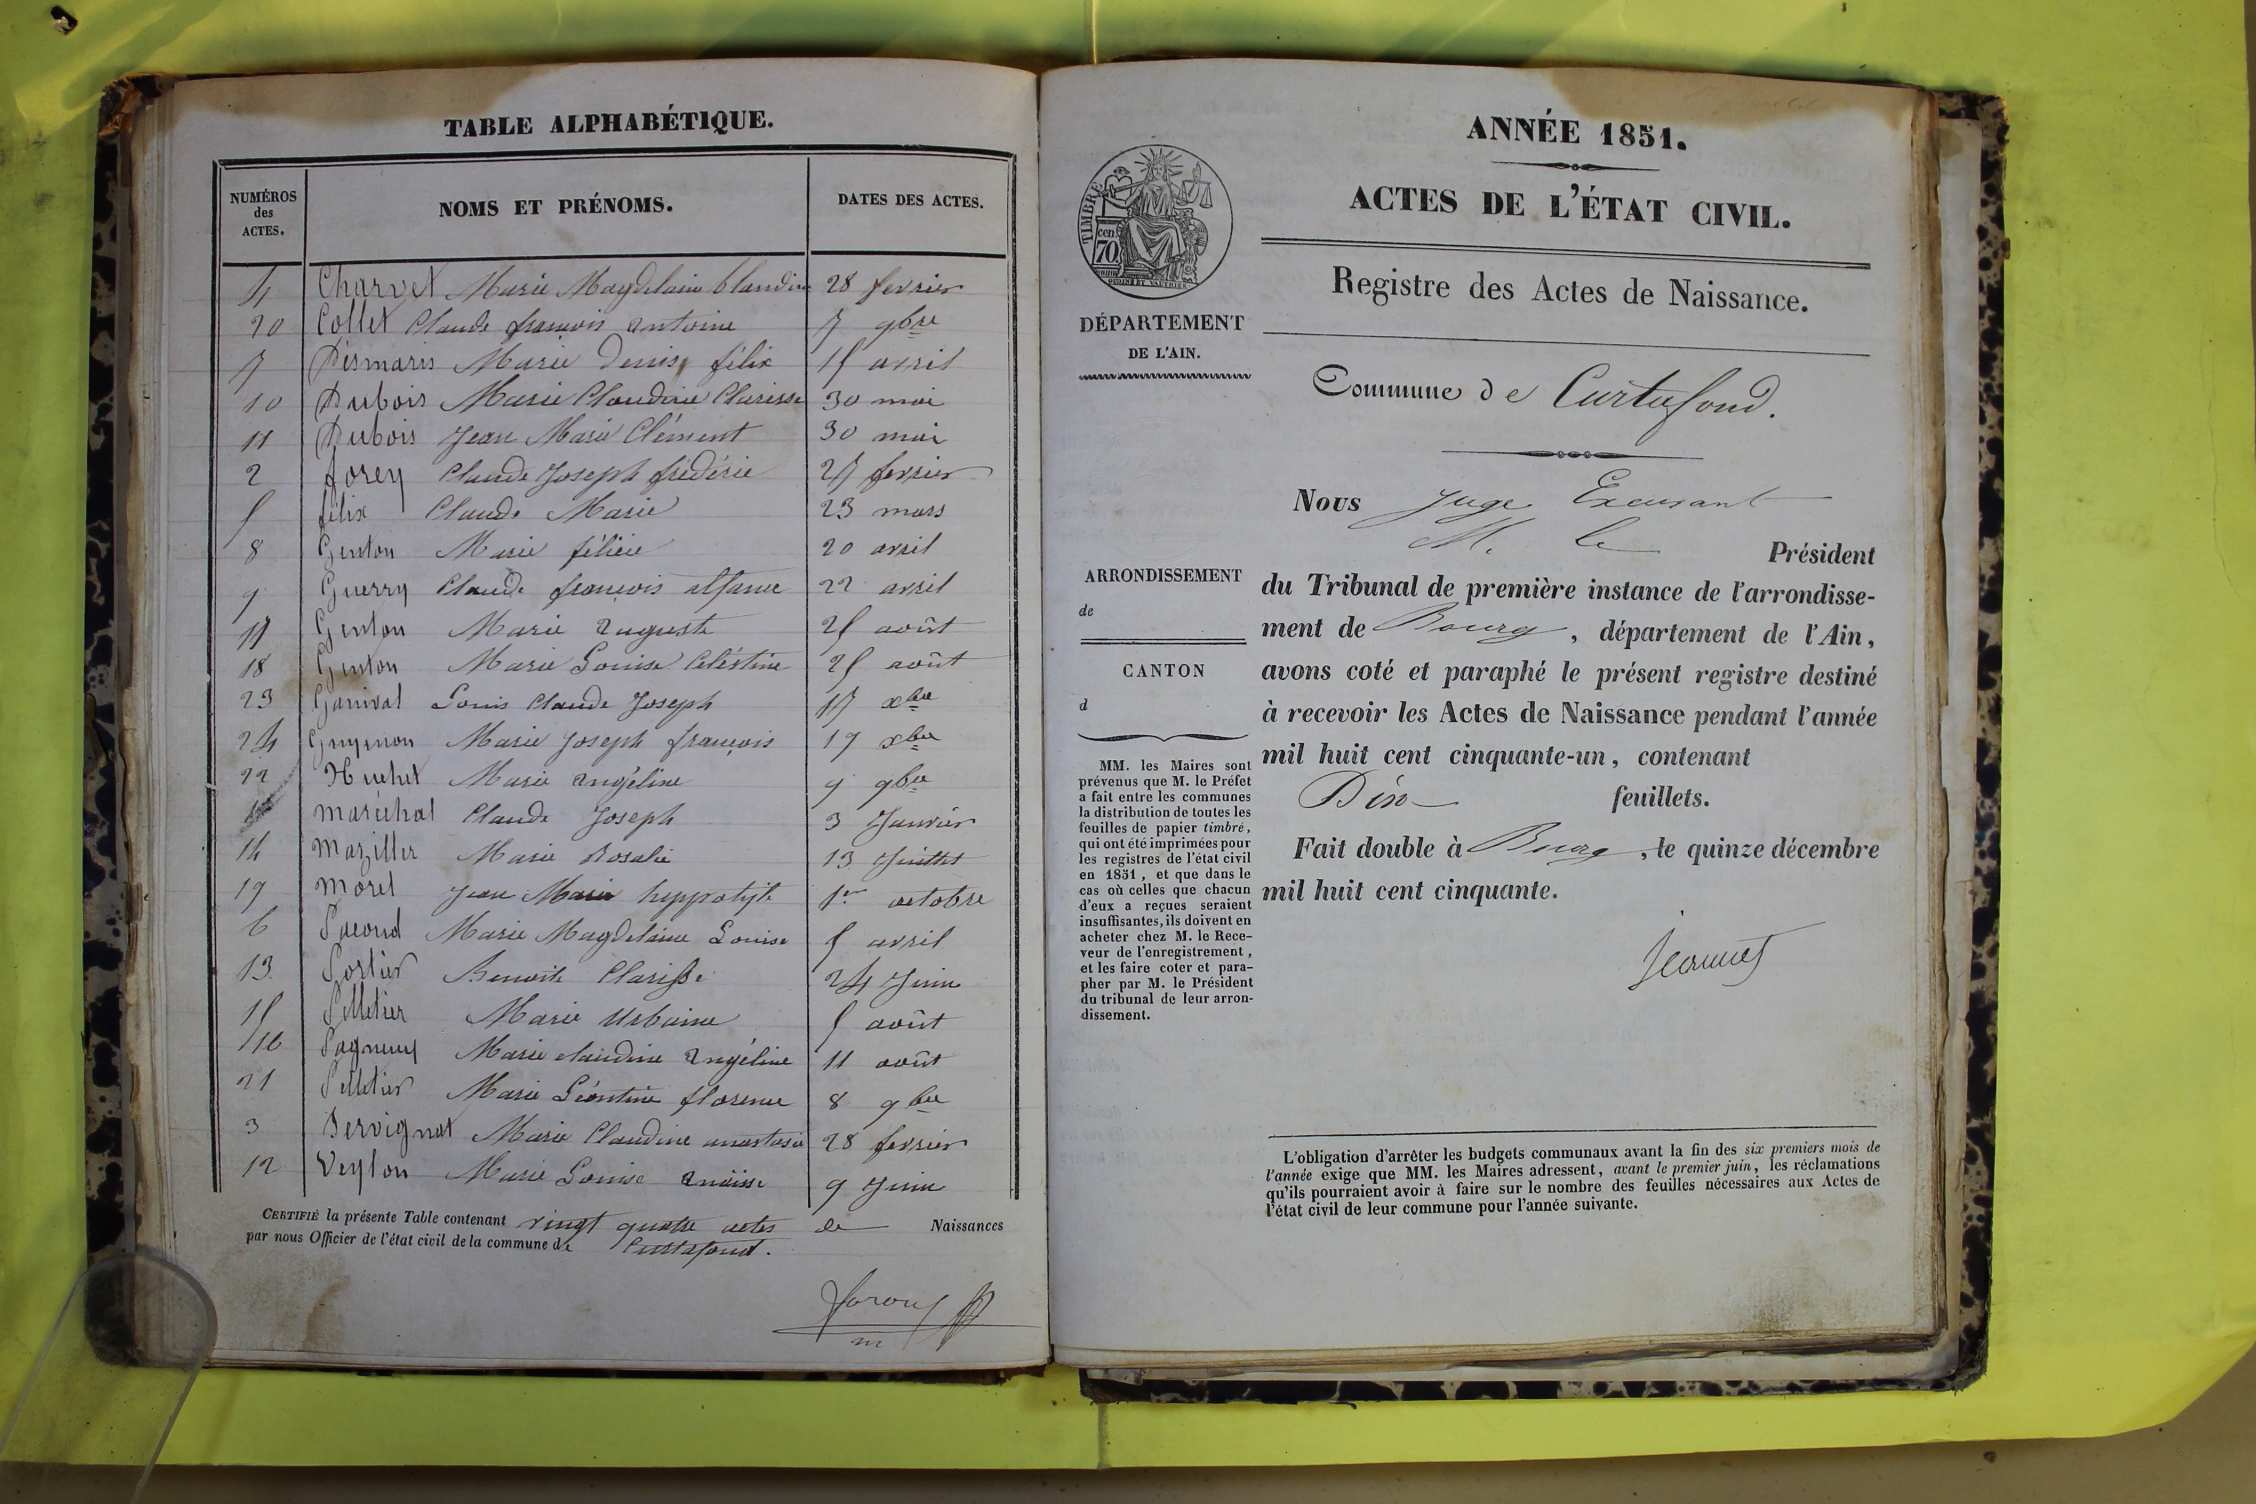 TABLE ALPHABÉTIQUE.
NUMÉROS des ACTES. NOMS ET PRÉNOMS. DATES DES ACTES.
4 Charvet Marie Magdelaine blandine 28 fevrier
20 Collet Claude françois antoine 7 9bre
7 Désmaris Marie Denise félix 15 avril
10 Dubois Marie Claudine Clarisse 30 mai
11 Dubois Jean Marie Clément 30 mai
2 forey Claude Joseph frédéric 27 fevrier
5 félix Claude Marie 23 mars
8 Genton Marie félicie 20 avril
9 Guerry Claude françois 22 avril
17 Genton Marie auguste 25 août
18 Genton Marie Louise Celéstine 25 août
23 Ganival Louis Claude Joseph 17 xbre
24 Marie Joseph françois 19 xbre
22 Huchet Marie angéline 9 9bre
1 maréchal Claude Joseph 3 Janvier
14 maziller Marie Rosalie 13 Juillet
19 morel Jean Marie hyppolyte 1er octobre
6 Pacoud Marie Magdelaine Louise 5 avril
13 Portier Benoite Clarisse 24 Juin
15 Pelletier Marie Urbaine 5 août
16 Marie claudine angéline 11 août
21 Pelletier Marie Léontine florence 8 9bre
3 Servignat Marie Claudine anastasie 28 fevrier
12 Veylon Marie Louise anaïsse 9 Juin
CERTIFIÉ la présente Table contenant vingt quatre actes de Naissances
par nous Officier de l'état civil de la commune de Curtafond.
m
TIMBRE
70
cen.
ANNÉE 1851.
ACTES DE L'ÉTAT CIVIL.
Registre des Actes de Naissance.
DÉPARTEMENT
DE L'AIN.
Commune de Curtafond.
Nous Juge Excusant
M. le Président
du Tribunal de première instance de l'arrondisse-
ment de Bourg, département de l'Ain,
avons coté et paraphé le présent registre destiné
à recevoir les Actes de Naissance pendant l'année
mil huit cent cinquante-un, contenant
Dix feuillets.
Fait double à Bourg, le quinze décembre
mil huit cent cinquante.
Jeannet
ARRONDISSEMENT
de
CANTON
d
MM. les Maires sont
prévenus que M. le Préfet
a fait entre les communes
la distribution de toutes les
feuilles de papier timbré,
qui ont été imprimées pour
les registres de l'état civil
en 1851, et que dans le
cas où celles que chacun
d'eux a reçues seraient
insuffisantes, ils doivent en
acheter chez M. le Rece-
veur de l'enregistrement,
et les faire coter et para-
pher par M. le Président
du tribunal de leur arron-
dissement.
L'obligation d'arrêter les budgets communaux avant la fin des six premiers mois de
l'année exige que MM. les Maires adressent, avant le premier juin, les réclamations
qu'ils pourraient avoir à faire sur le nombre des feuilles nécessaires aux Actes de
l'état civil de leur commune pour l'année suivante.